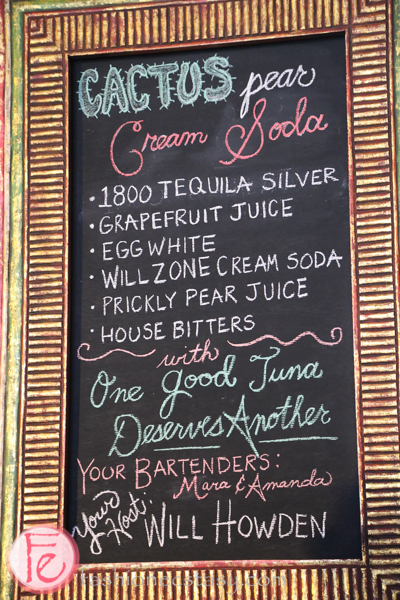 CACTUS pear
Cream Soda
· 1800 TEQUILA SILVER
· GRAPEFRUIT JUICE
· EGG WHITE
· WILLZONE CREAM SODA
· PRICKLY PEAR JUICE
· HOUSE BITTERS
with
One Good Tuna
Deserves Another
YOUR BARTENDERS:
Mara & Amanda
Your Host:
WILL HOWDEN
Fe
fashionecstasy.com